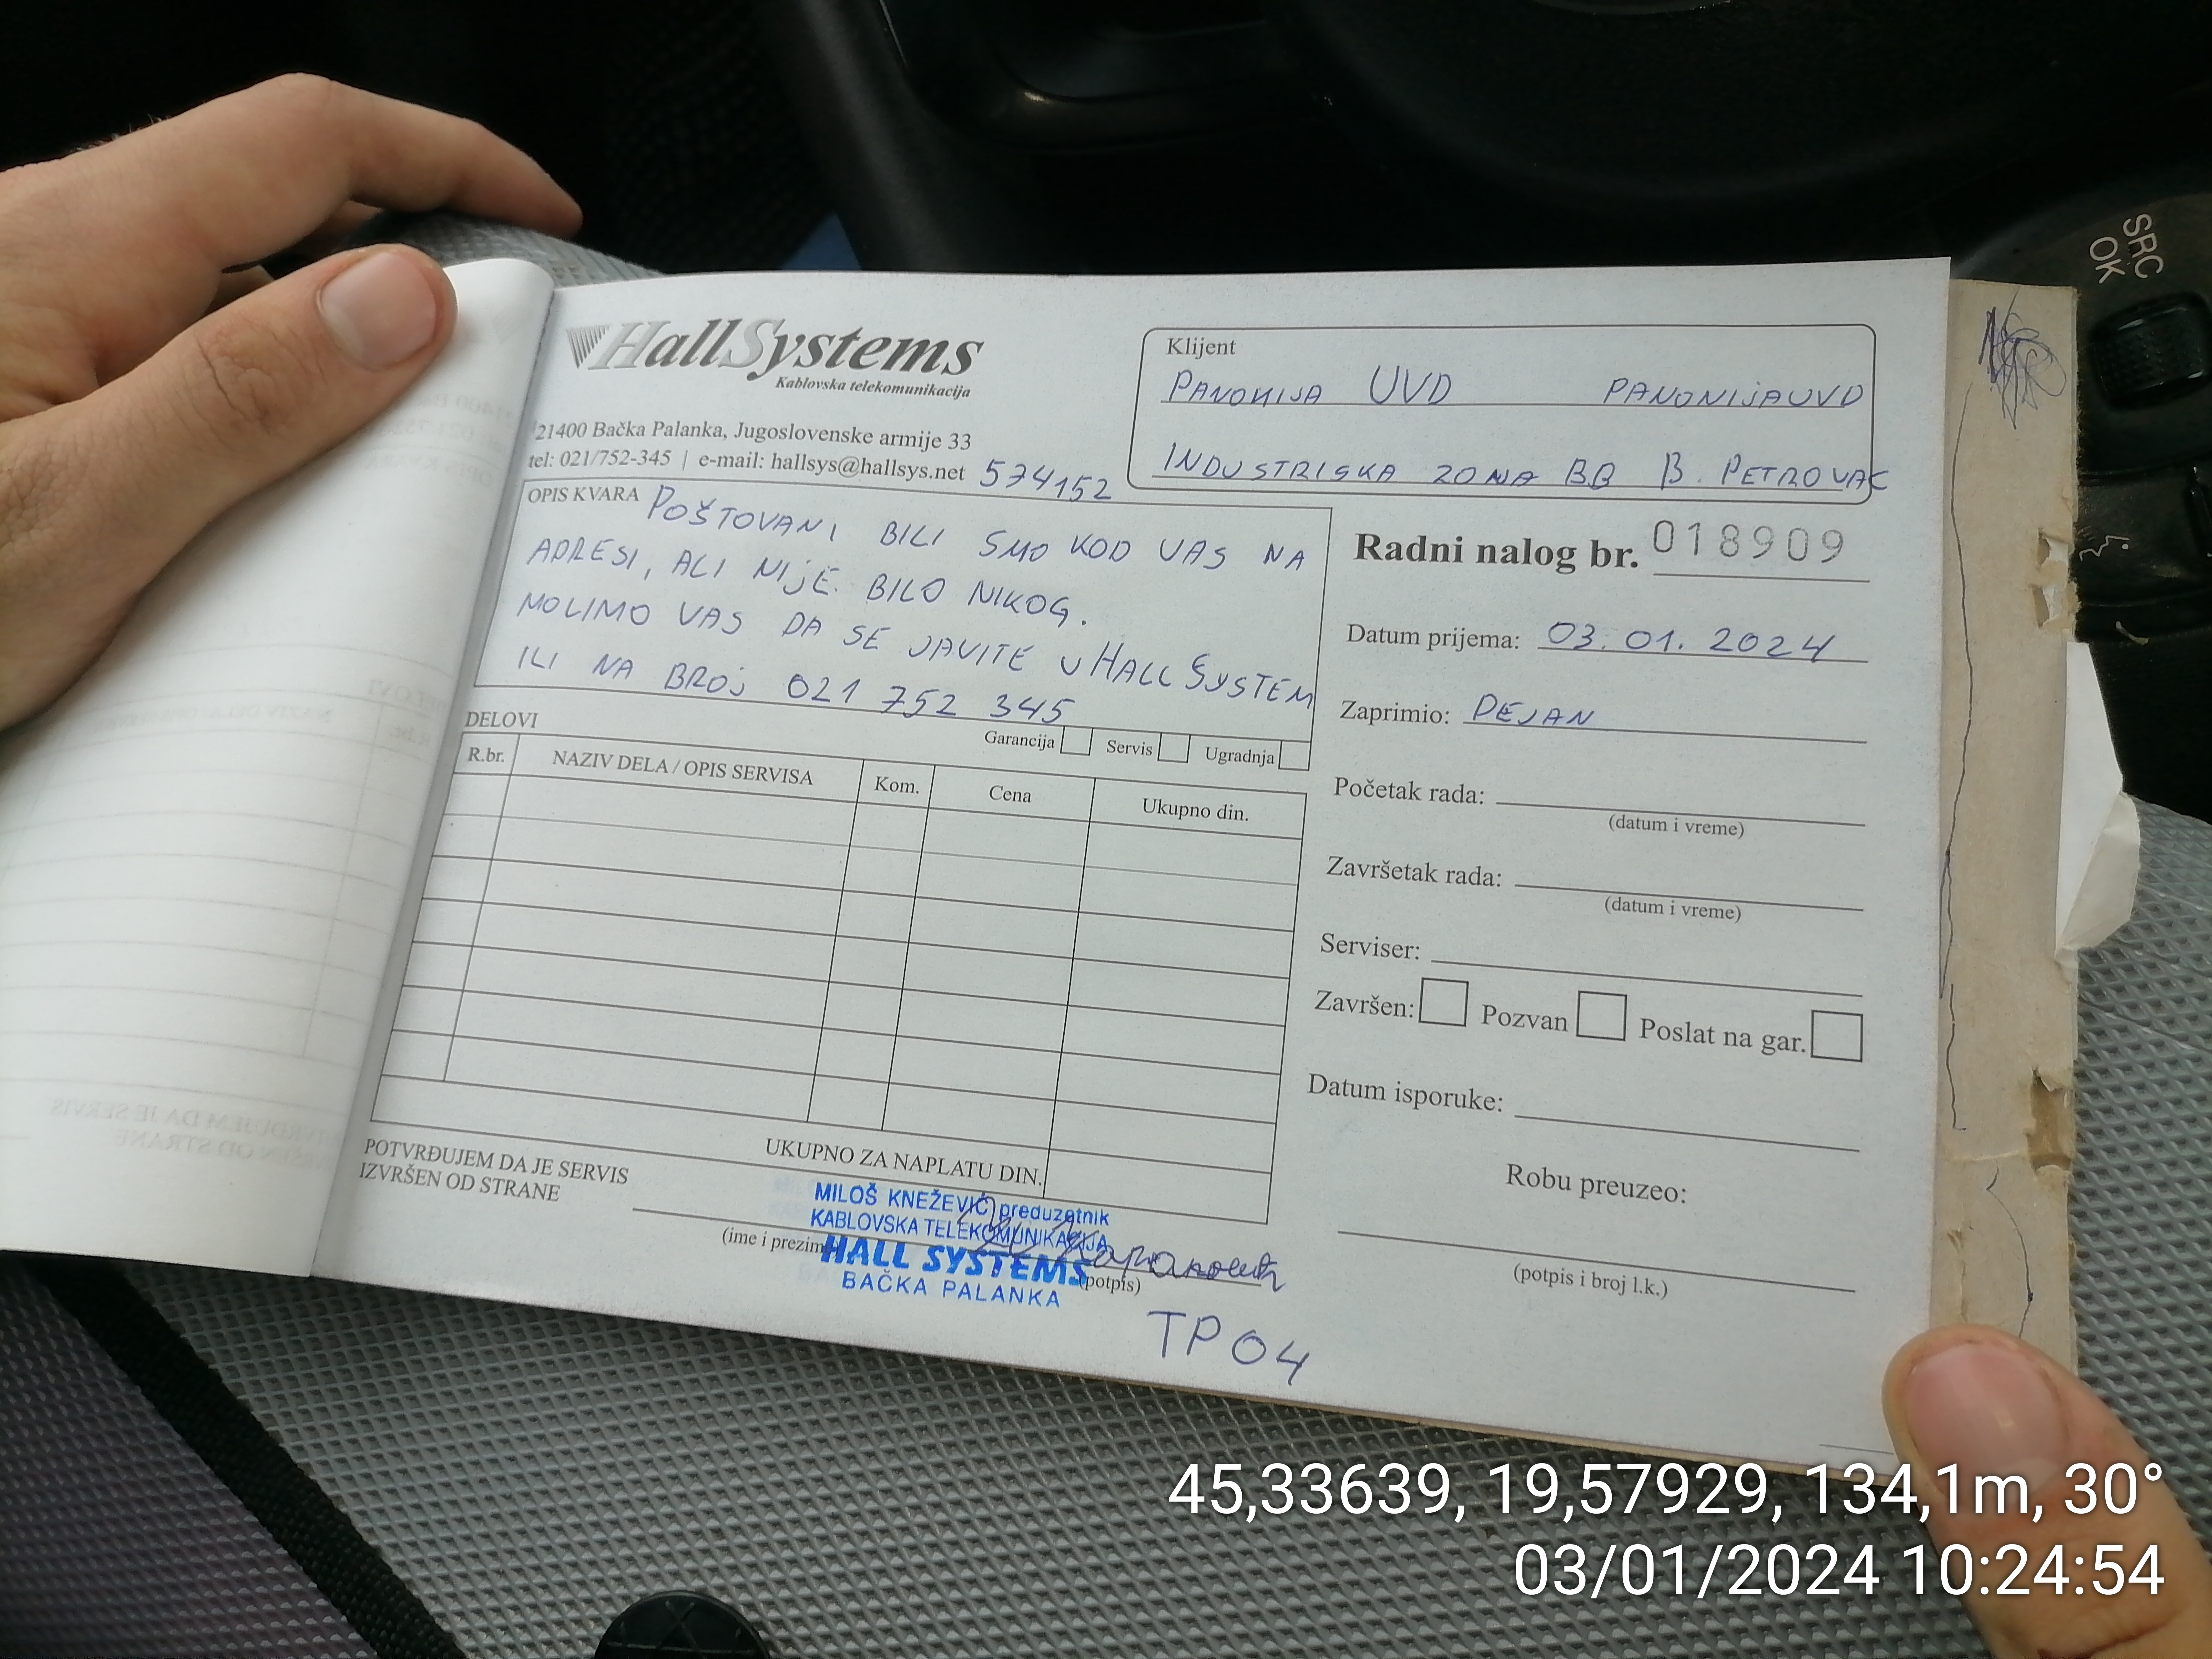 HallSystems
Kablovska telekomunikacija
21400 Bačka Palanka, Jugoslovenske armije 33
tel: 021/752-345 | e-mail: hallsys@hallsys.net 574152
Klijent
PANONIJA UVD PANONIJAUVD
INDUSTRISKA ZONA BB B. PETROVAC
OPIS KVARA POŠTOVANI BILI SMO KOD VAS NA
ADRESI, ALI NIJE BILO NIKOG.
MOLIMO VAS DA SE JAVITE U HALL SYSTEM
ILI NA BROJ 021 752 345
Garancija Servis Ugradnja
DELOVI
R.br. NAZIV DELA / OPIS SERVISA Kom. Cena Ukupno din.
UKUPNO ZA NAPLATU DIN.
POTVRĐUJEM DA JE SERVIS
IZVRŠEN OD STRANE
(ime i prezim
(potpis)
MILOŠ KNEŽEVIĆ preduzetnik
KABLOVSKA TELEKOMUNIKACIJA
HALL SYSTEMS
BAČKA PALANKA
TP04
Radni nalog br. 018909
Datum prijema: 03.01.2024
Zaprimio: DEJAN
Početak rada:
(datum i vreme)
Završetak rada:
(datum i vreme)
Serviser:
Završen: Pozvan Poslat na gar.
Datum isporuke:
Robu preuzeo:
(potpis i broj l.k.)
SRC
OK
45,33639, 19,57929, 134,1m, 30°
03/01/2024 10:24:54